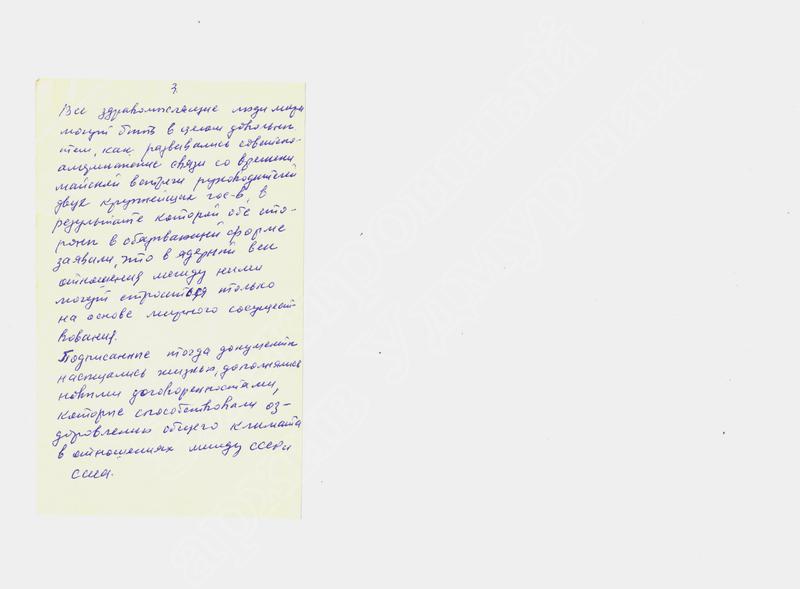 3.
Все здравомыслящие люди мира
могут быть в целом довольны
тем, как развивались советско-
американские связи со времени
майской встречи руководителей
двух крупнейших гос-в, в
результате которой обе сто-
роны в обязывающей форме
заявили, что в ядерный век
отношения между ними
могут строиться только
на основе мирного сосущест-
вования.
Подписанные тогда документы
насыщались жизнью, дополнялись
новыми договоренностями,
которые способствовали оз-
доровлению общего климата
в отношениях между СССР и
США.